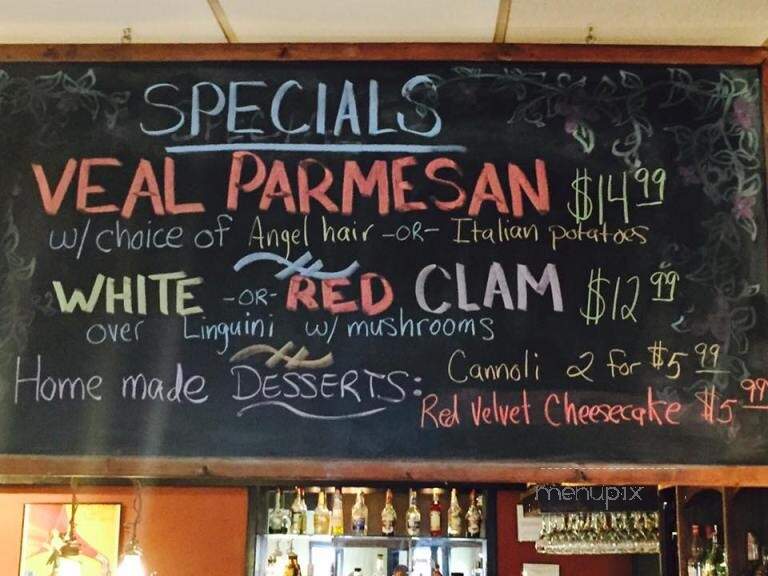 SPECIALS
VEAL PARMESAN $14.99
w/ choice of Angel hair -OR- Italian potatoes
WHITE -OR- RED CLAM $12.99
over Linguini w/ mushrooms
Home made DESSERTS: Cannoli 2 for $5.99
Red Velvet Cheesecake $5.99
menupix